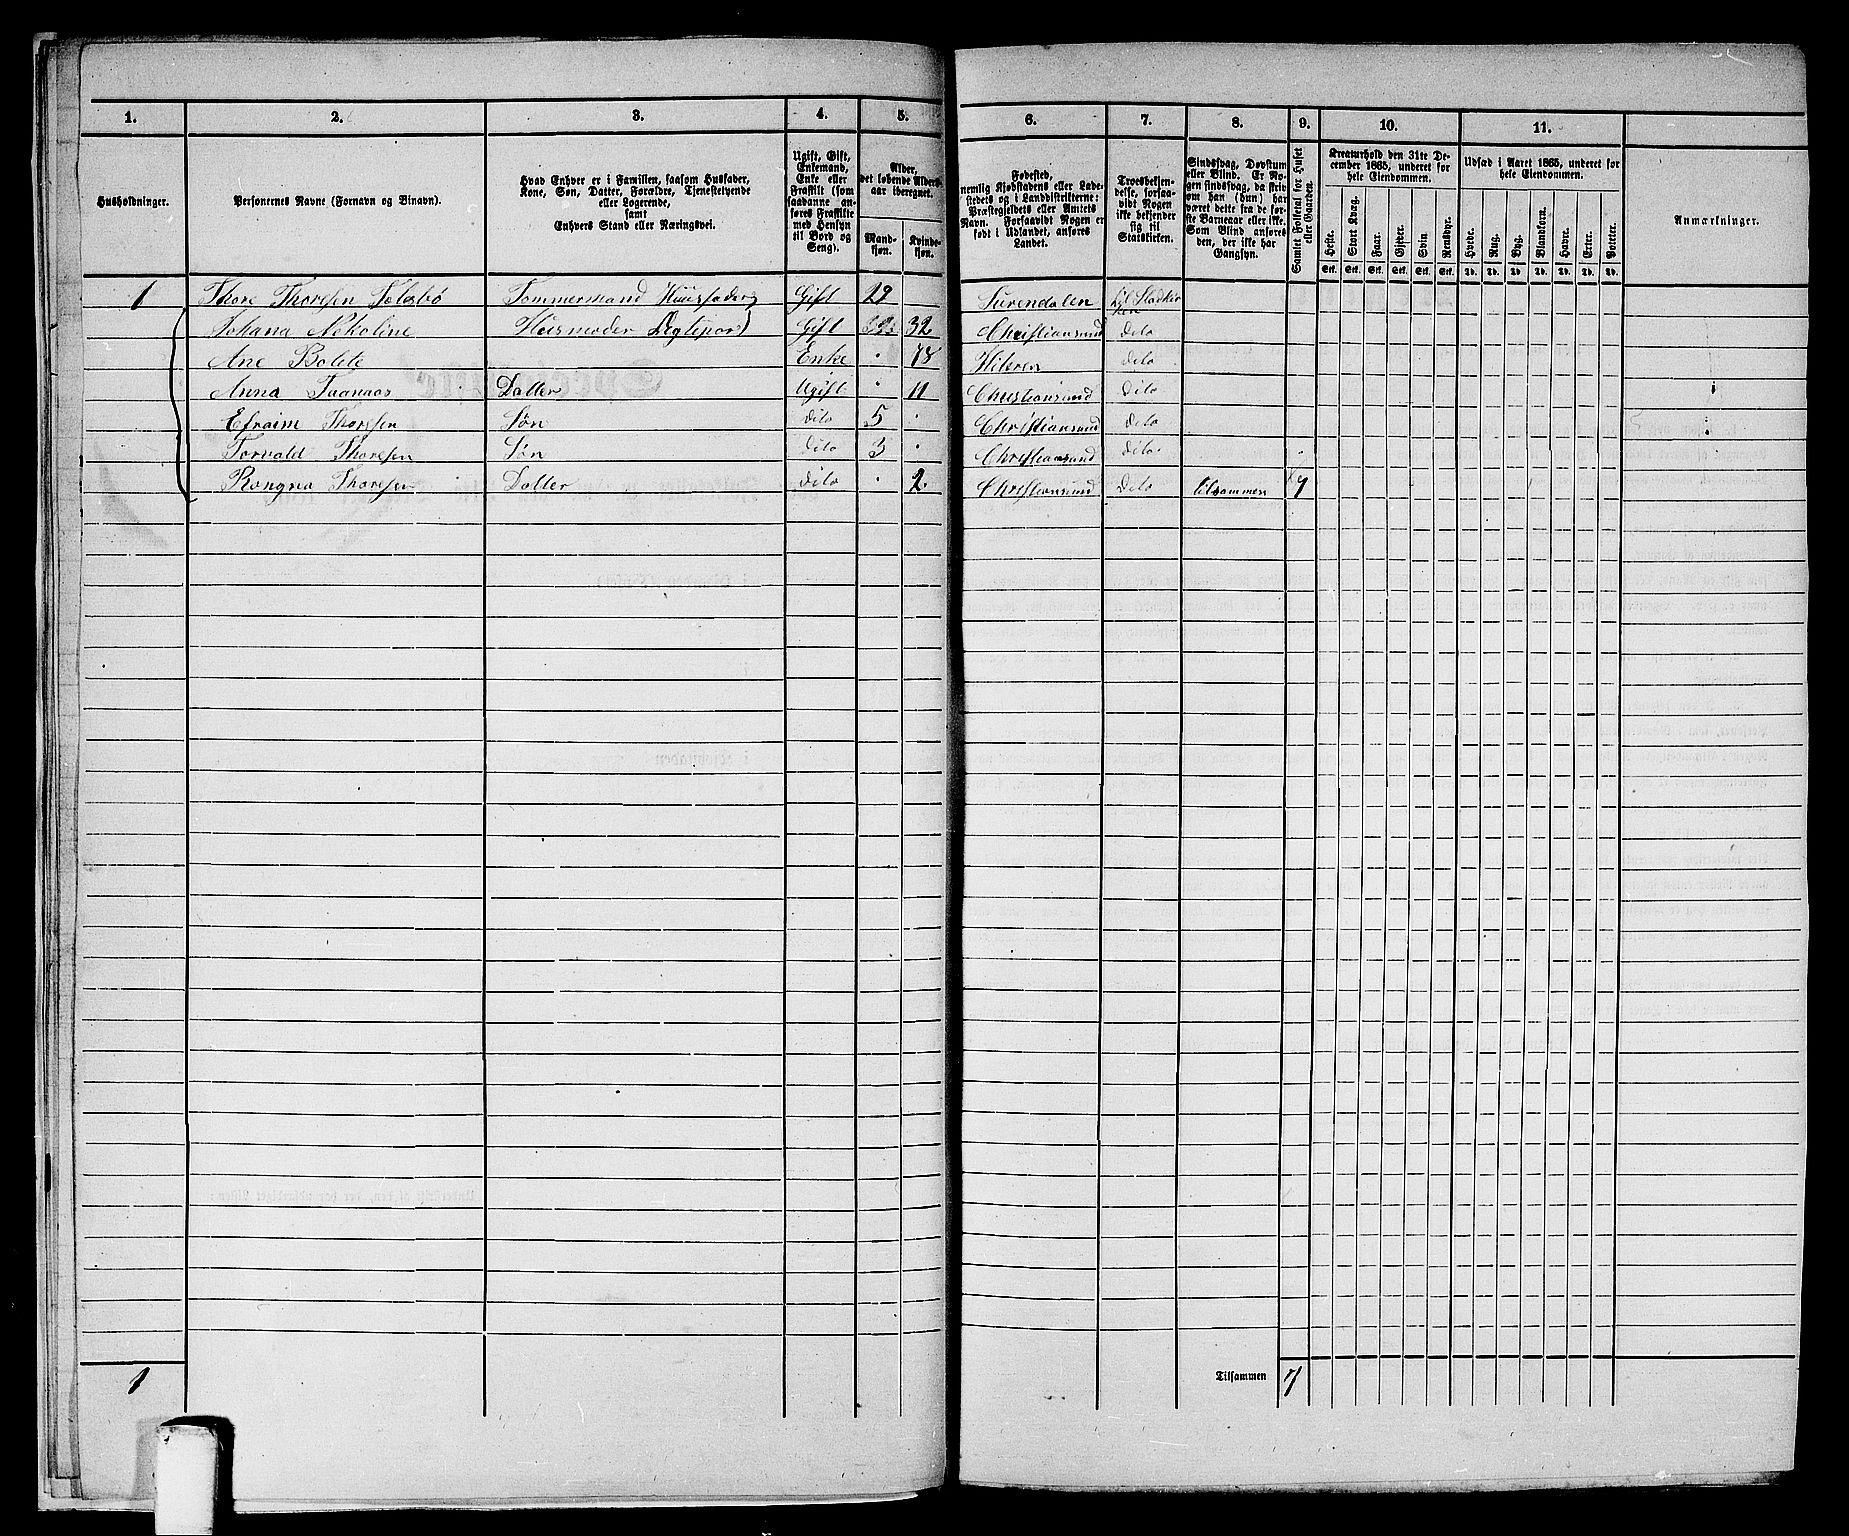 1. 2. 3. 4. 5. 6. 7. 8. 9. 10. 11.
Husholdninger.
Personernes Navne (Fornavn og Binavn).
Hvad Enhver er i Familien, saasom Husfader,
Kone, Søn, Datter, Forældre, Tjenestetyende
eller Logerende,
samt
Enhvers Stand eller Næringsvei.
Ugift, Gift,
Enkemand,
Enke eller
Fraskilt (som
saadanne an-
føres Fraskilte
med Hensyn
til Bord og
Seng).
Alder,
det løbende Alders-
aar iberegnet.
Mand-
kjøn.
Kvinde-
kjøn.
Fødested,
nemlig Kjøbstadens eller Lade-
stedets og i Landdistrikterne:
Præstegjeldets eller Amtets
Navn. Forsaavidt Nogen er
født i Udlandet, anføres
Landet.
Troesbekjen-
delse, forsaa-
vidt Nogen
ikke bekjender
sig til
Statskirken.
Sindssvag, Døvstum
eller Blind. Er No-
gen sindssvag, da skriv
om han (hun) har
været dette fra de før-
ste Barneaar eller ikke.
Som Blind anføres
den, der ikke har
Gangsyn.
Samlet Folketal for Huset
eller Gaarden.
Kreaturhold den 31te De-
cember 1865, underet for
hele Eiendommen.
Heste. Stort Kvæg. Faar. Gjeder. Svin. Rensdyr.
Stk. Stk. Stk. Stk. Stk. Stk.
Udsæd i Aaret 1865, underet for
hele Eiendommen.
Hvede. Rug. Byg. Blandkorn. Havre. Erter. Poteter.
Td. Td. Td. Td. Td. Td. Td.
Anmærkninger.
1 Thore Thoresen Tømmermand Huusfader Gift 29 Surendalen til Stadkirken
Johana Nekoline Huusmoder Gift 32 Christiansund dito
Ane Bolete Enke 78 Hiteren dito
Anna Datter Ugift 11 Christiansund dito
Efraim Thoresen Søn dito 5 Christiansund dito
Torvald Thoresen Søn dito 3 Christiansund dito
Rangna Thoresen Datter dito 2 Christiansund dito tilsammen 7
1 Tilsammen 7